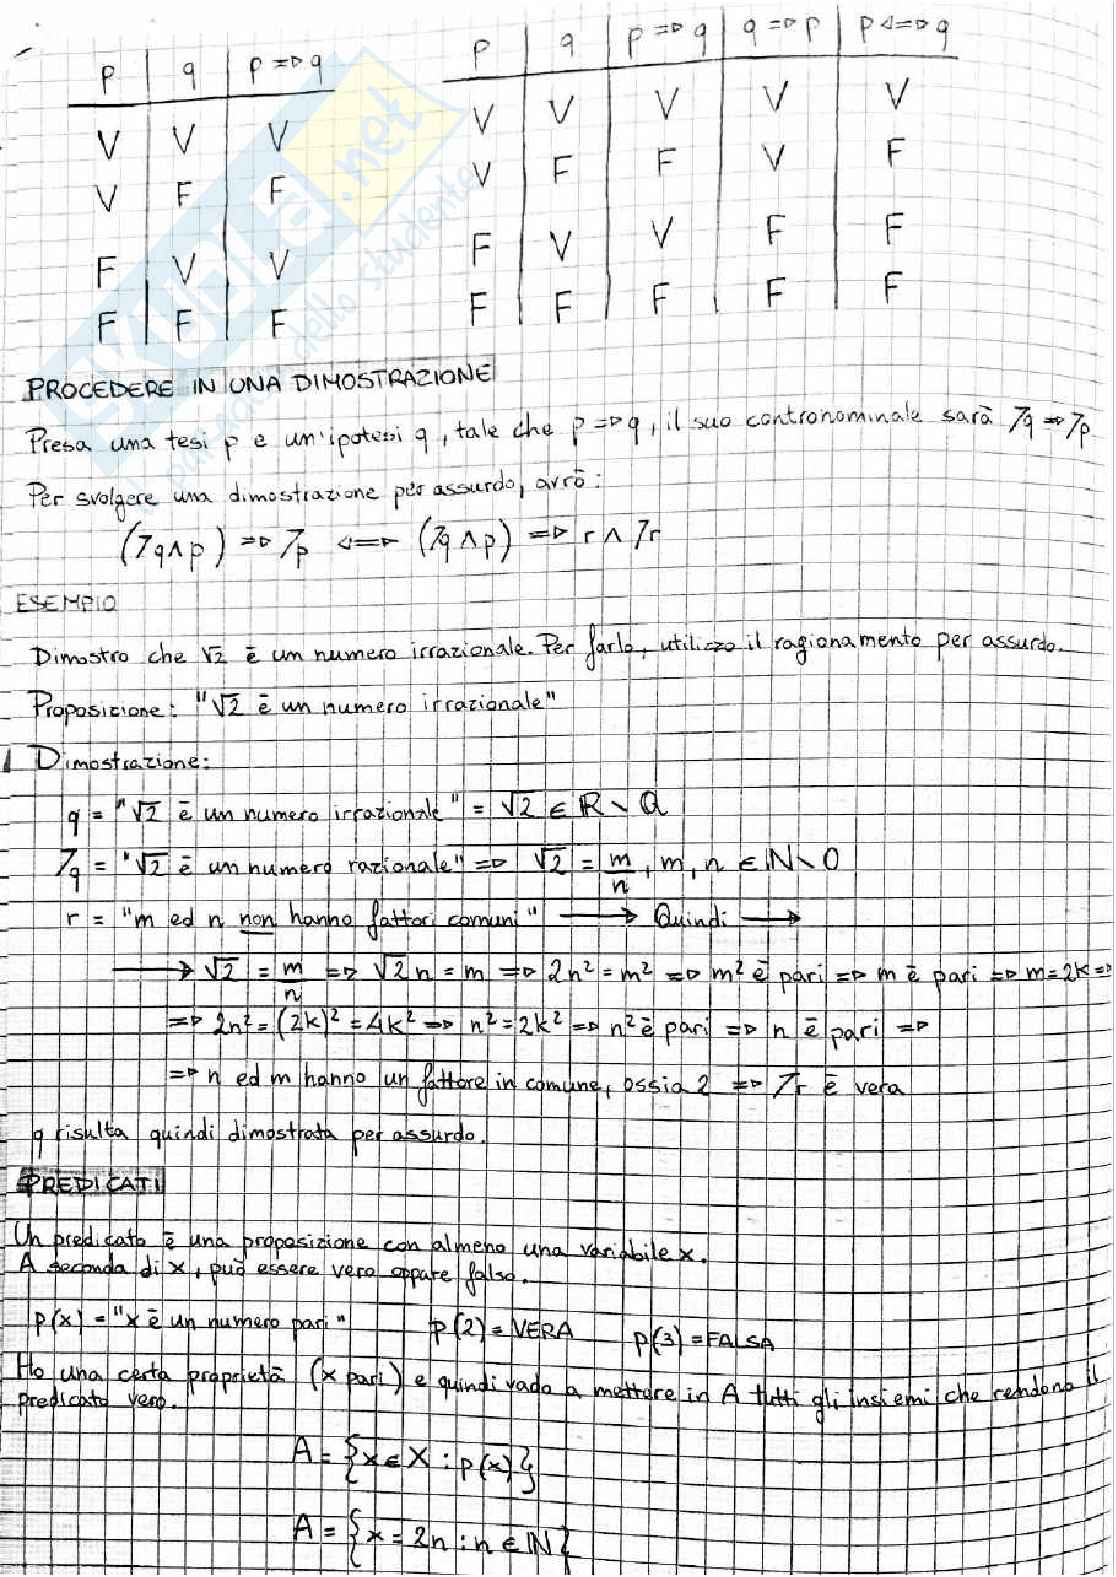 p | q | p => q
V | V | V
V | F | F
F | V | V
F | F | F
p | q | p => q | q => p | p <=> q
V | V | V | V | V
V | F | F | V | F
F | V | V | F | F
F | F | F | F | F
PROCEDERE IN UNA DIMOSTRAZIONE
Presa una tesi p e un'ipotesi q, tale che p => q, il suo contronominale sarà 7q => 7p
Per svolgere una dimostrazione per assurdo, avrò:
(7q ∧ p) => 7p <=> (7q ∧ p) => r ∧ 7r
ESEMPIO
Dimostro che √2 è un numero irrazionale. Per farlo, utilizzo il ragionamento per assurdo.
Proposizione: "√2 è un numero irrazionale"
Dimostrazione:
q = "√2 è un numero irrazionale" = √2 ∈ ℝ \ ℚ
7q = "√2 è un numero razionale" => √2 = m/n, m, n ∈ ℕ \ 0
r = "m ed n non hanno fattori comuni" → Quindi →
→ √2 = m/n => √2 n = m => 2n² = m² => m² è pari => m è pari => m = 2k =>
=> 2n² = (2k)² = 4k² => n² = 2k² => n² è pari => n è pari =>
=> n ed m hanno un fattore in comune, ossia 2 => 7r è vera
q risulta quindi dimostrata per assurdo.
PREDICATI
Un predicato è una proposizione con almeno una variabile x.
A seconda di x, può essere vero oppure falso.
p(x) = "x è un numero pari" p(2) = VERA p(3) = FALSA
Ho una certa proprietà (x pari) e quindi vado a mettere in A tutti gli insiemi che rendono il
predicato vero.
A = {x ∈ X : p(x)}
A = {x = 2n : n ∈ ℕ}
skuola.net
il paradiso dello studente